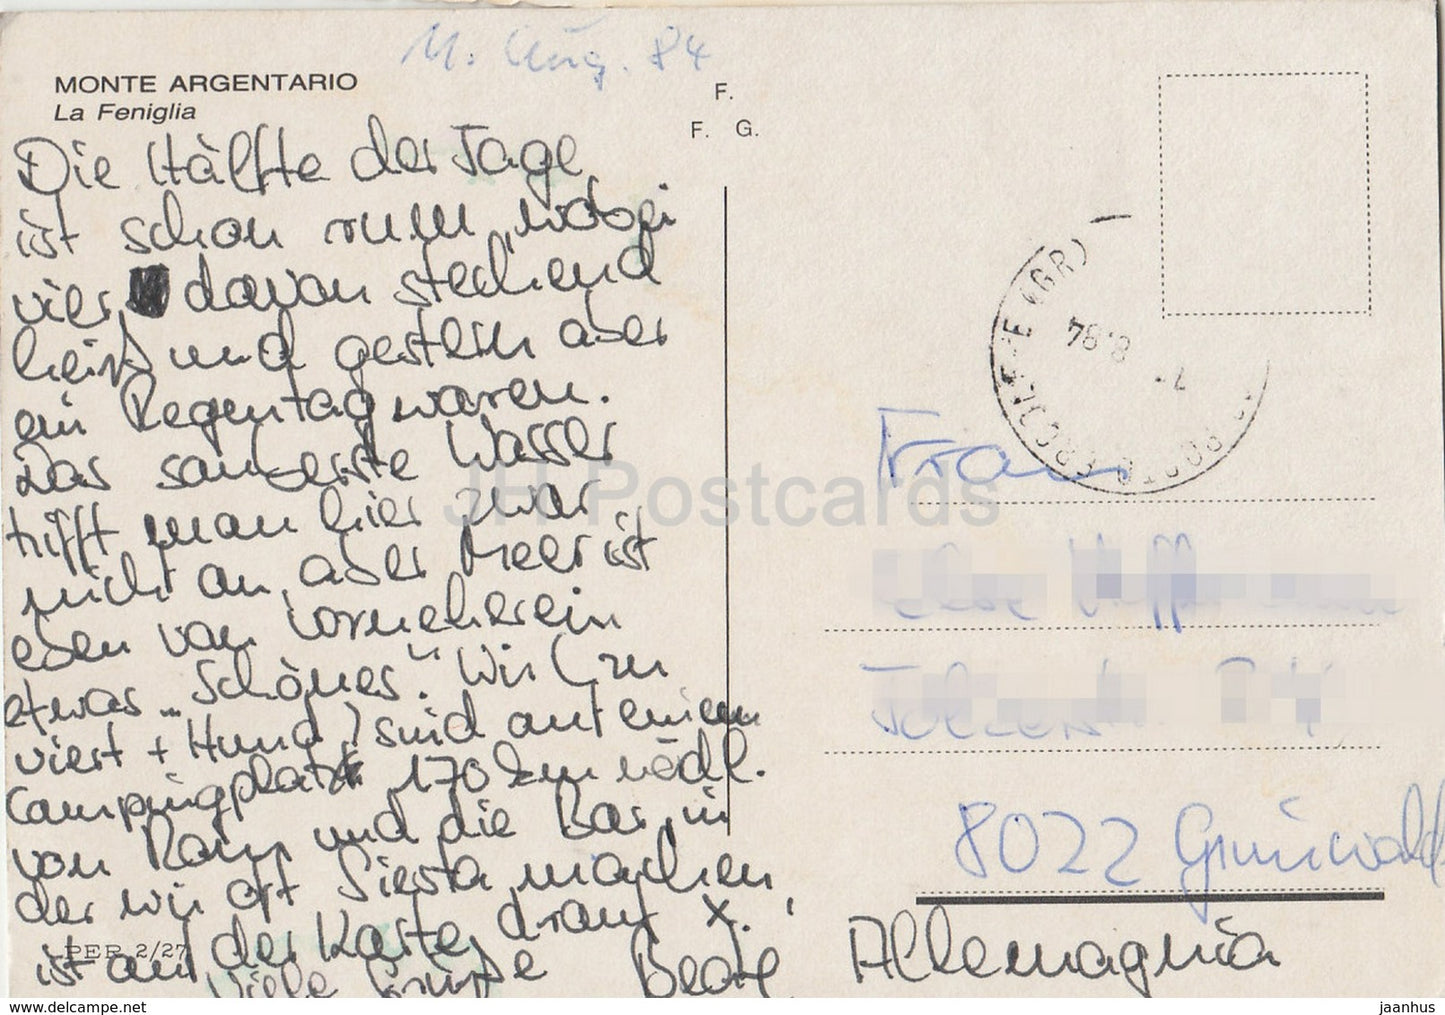 11. Aug. 84
MONTE ARGENTARIO
La Feniglia
F.
F. G.
Die Hälfte der Tage
ist schon rum, wobei
vier davon stechend
heiß und gestern aber
ein Regentag waren.
Das sauberste Wasser
trifft man hier zwar
nicht an, aber Meer ist
eben von vorneherein
etwas „Schönes". Wir (zu
viert + Hund) sind auf einem
Campingplatz 170 km nödl.
von Rom und die Bar, in
der wir oft Siesta machen,
ist auf der Karte drauf X.
Viele Grüße Beate
PER 2/27
PORTO ERCOLE (GR)
7- 8.84
Frau
8022 Grünwald
Allemagnia
JH Postcards
www.delcampe.net
jaanhus